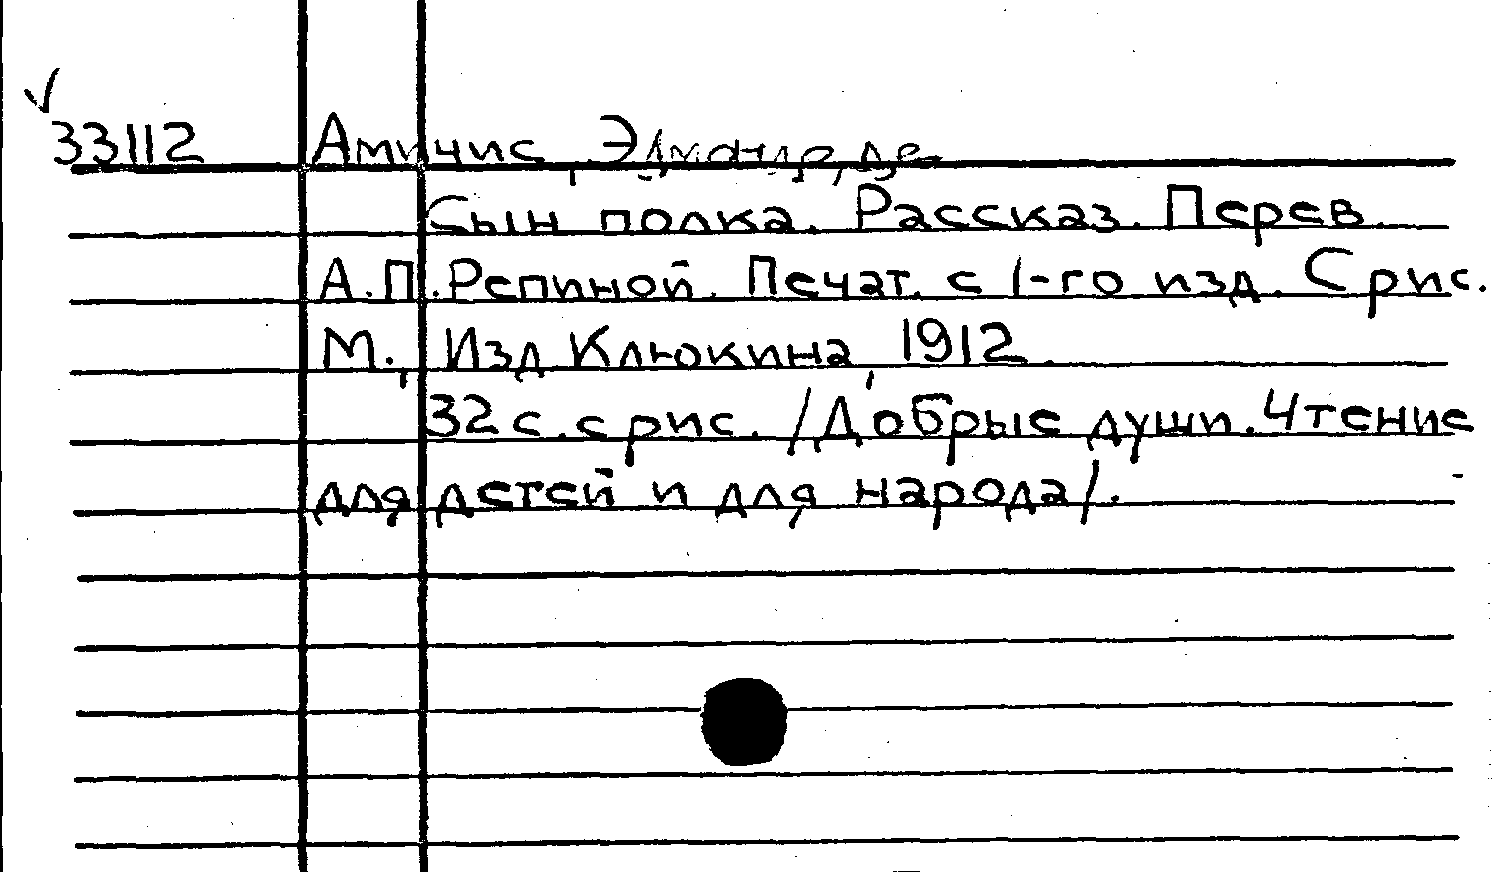 √
33112 Амичис, Эдмондо, де
Сын полка. Рассказ. Перев.
А.П. Репиной. Печат. с 1-го изд. С рис.
М., Изд Клюкина, 1912.
32 с. с рис. /Добрые души. Чтение
для детей и для народа/.